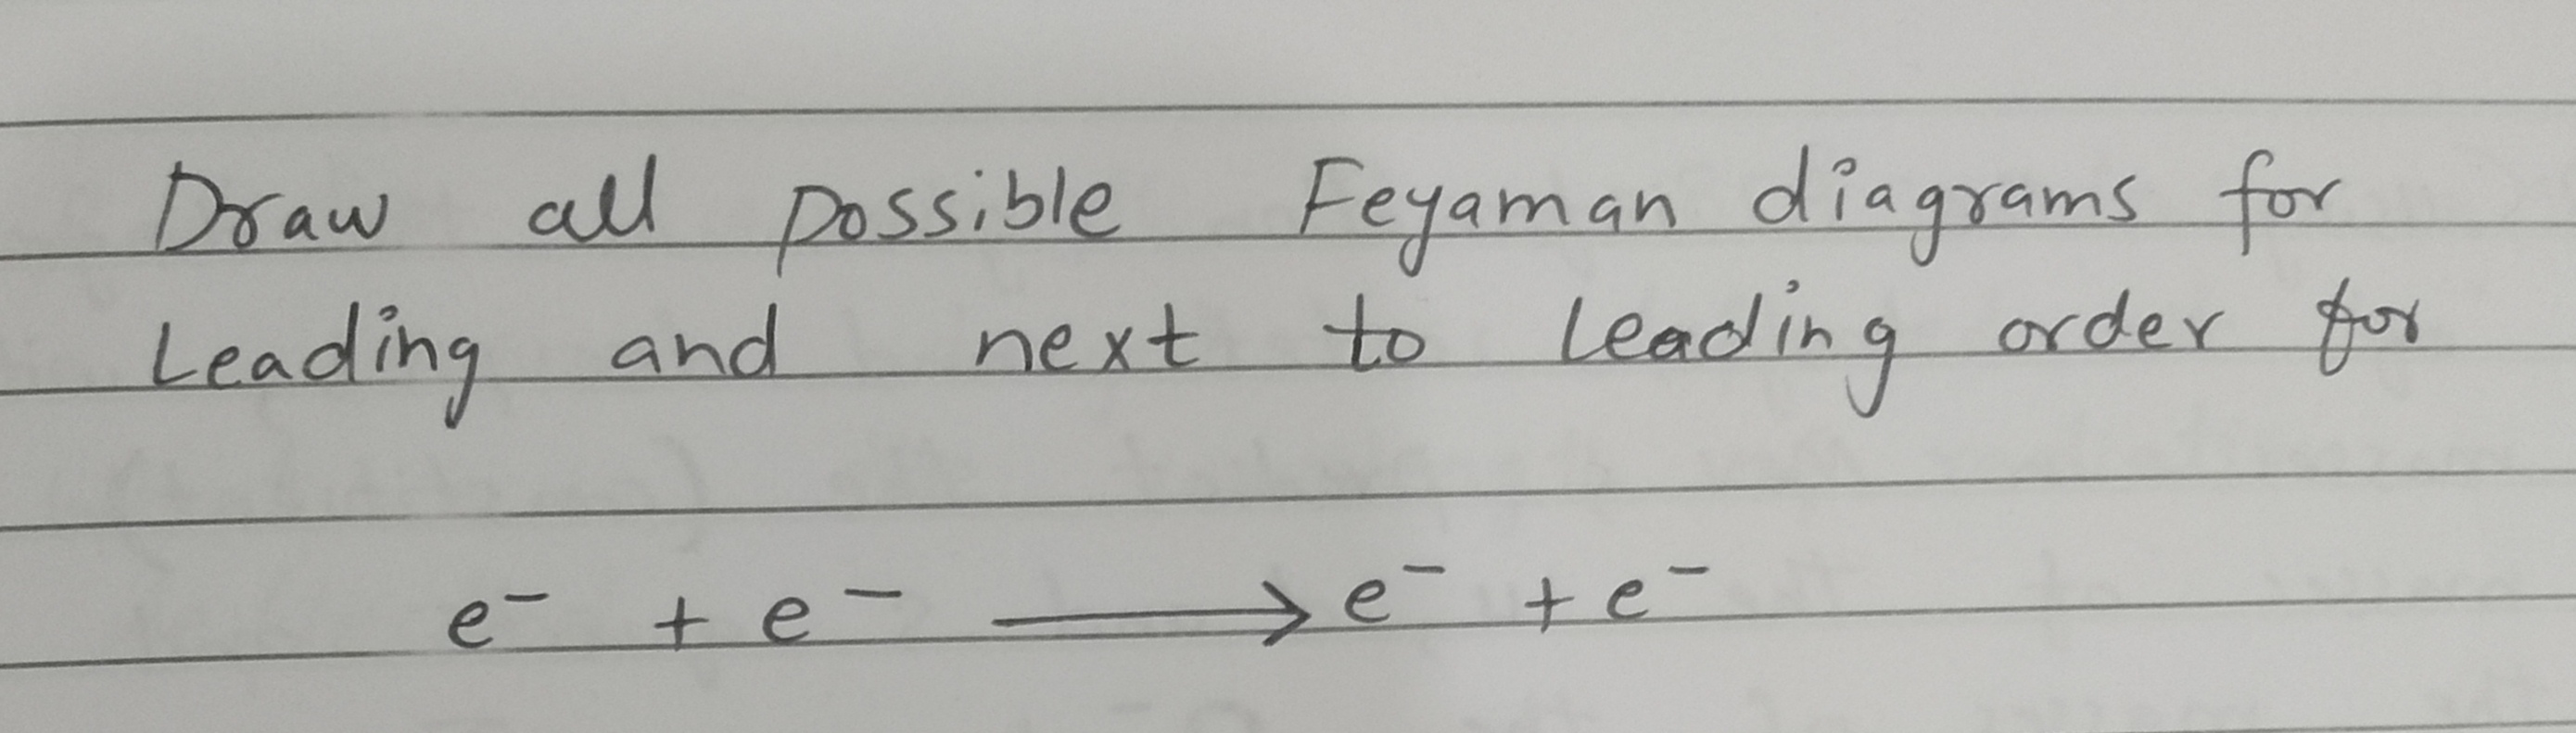 Draw all possible Feyaman diagrams for
Leading and next to leading order for
e⁻ + e⁻ ⟶ e⁻ + e⁻